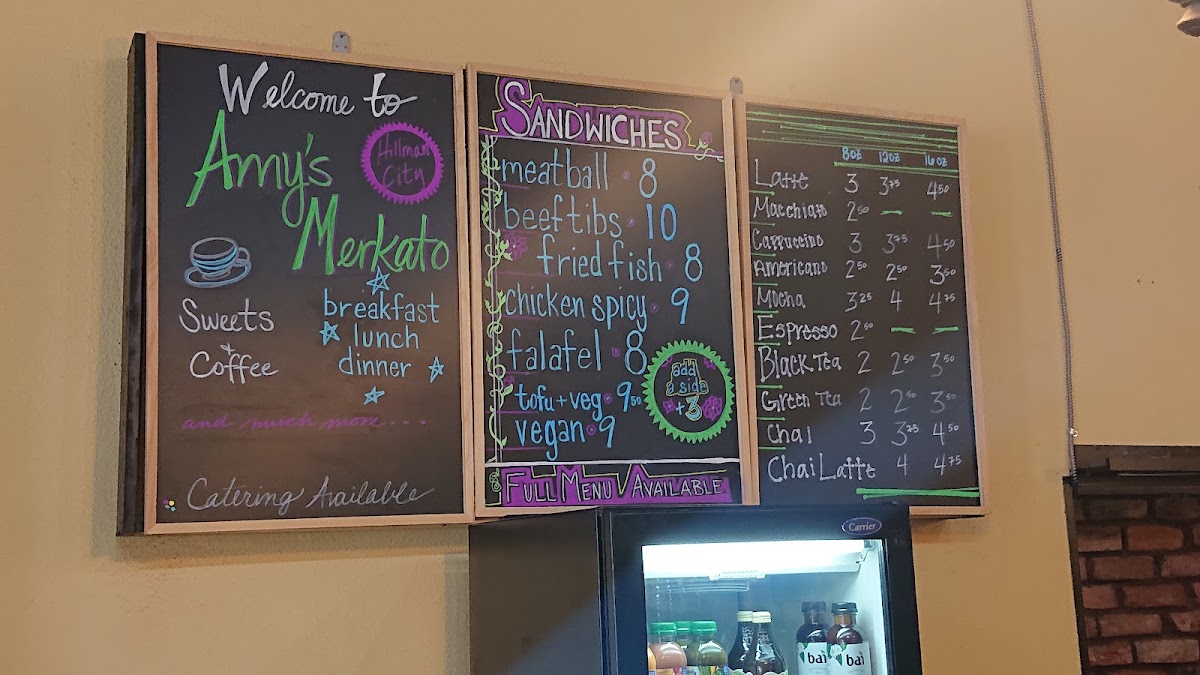 Welcome to
Amy's
Merkato
Hillman
City
Sweets
+
Coffee
breakfast
lunch
dinner
and much more...
Catering Available
SANDWICHES
meatball 8
beef tibs 10
fried fish 8
chicken spicy 9
falafel 8
tofu + veg 9.50
vegan 9
add
a side
+3
FULL MENU AVAILABLE
8oz 12oz 16oz
Latte 3 3.75 4.50
Macchiato 2.50 — —
Cappuccino 3 3.75 4.50
Americano 2.50 2.50 3.50
Mocha 3.25 4 4.75
Espresso 2.50 — —
Black Tea 2 2.50 3.50
Green Tea 2 2.50 3.50
Chai 3 3.75 4.50
Chai Latte 4 4.75
Carrier
bai bai